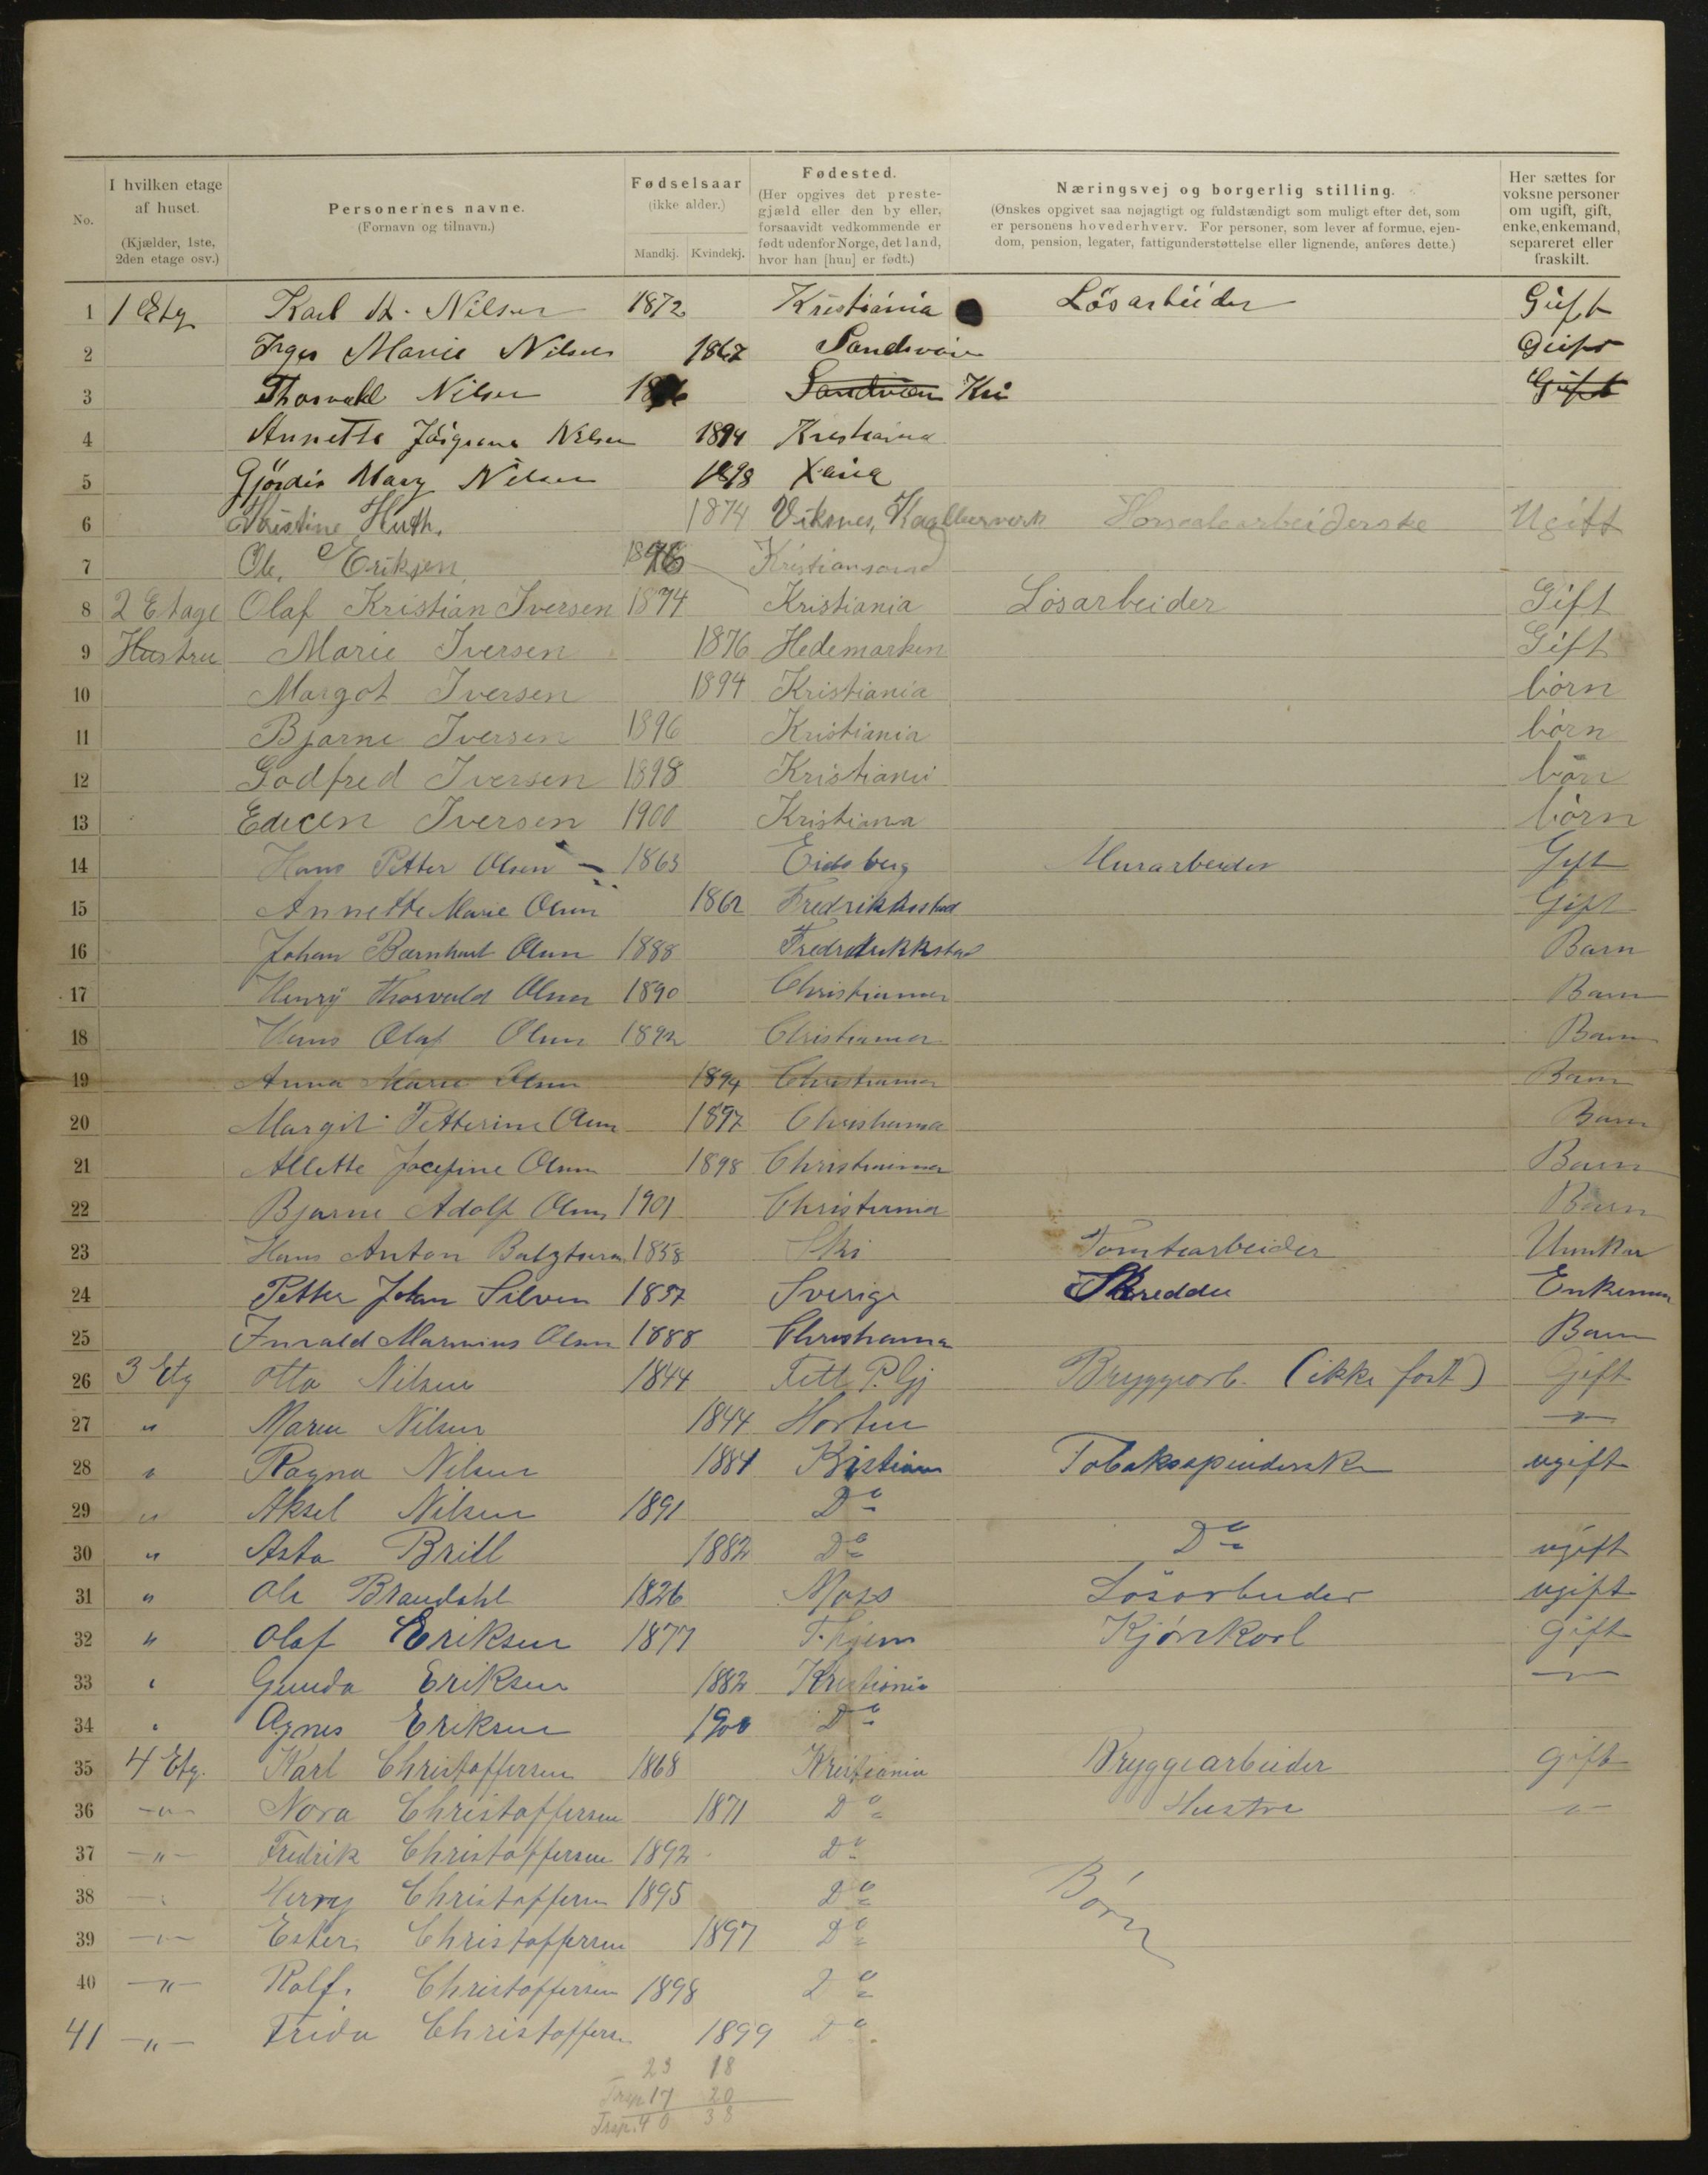 No. I hvilken etage af huset. (Kjælder, 1ste, 2den etage osv.) Personernes navne. (Fornavn og tilnavn.) Fødselsaar (ikke alder.) Mandkj. Kvindekj. Fødested. (Her opgives det prestegjæld eller den by eller, forsaavidt vedkommende er født udenfor Norge, det land, hvor han [hun] er født.) Næringsvej og borgerlig stilling. (Ønskes opgivet saa nøjagtigt og fuldstændigt som muligt efter det, som er personens hovederhverv. For personer, som lever af formue, ejendom, pension, legater, fattigunderstøttelse eller lignende, anføres dette.) Her sættes for voksne personer om ugift, gift, enke, enkemand, separeret eller fraskilt.
1 1 Etg Karl Nilsen 1872 Kristiania Løsarbeider Gift
2 Inger Marie Nilsen 1867 Sandviken Gift
3 Thorvald Nilsen Sandviken Kria Gift
4 Annette Nilsen 1894 Kristiania
5 Gjördis Mary Nilsen 1898 Xania
6 Kristine Huth. 1874 Viksnes, Ugift
7 Ole, Eriksen Kristiansand
8 2 Etage Olaf Kristian Iversen 1874 Kristiania Løsarbeider Gift
9 Hustru Marie Iversen 1876 Hedemarken Gift
10 Margot Iversen 1894 Kristiania börn
11 Bjarne Iversen 1896 Kristiania börn
12 Godfred Iversen 1898 Kristiania börn
13 Iversen 1900 Kristiania börn
14 Hans Petter Olsen 1863 Eidsberg Murarbeider Gift
15 Annette Marie Olsen 1862 Fredrikksstad Gift
16 Johan Bernhart Olsen 1888 Fredrikkstad Barn
17 Henry Thorvald Olsen 1890 Christiania Barn
18 Hans Olaf Olsen 1892 Christiania Barn
19 Anna Marie Olsen 1894 Christiania Barn
20 Margit Petterine Olsen 1897 Christiania Barn
21 Allette Josefine Olsen 1898 Christiania Barn
22 Bjarne Adolf Olsen 1901 Christiania Barn
23 Hans Anton 1858 Ski Tomtearbeider Unnkar
24 Petter Johan Silven 1857 Sverige Skredder Enkeman
25 Olsen 1888 Christiania Barn
26 3 Etg Otto Nilsen 1844 Fett P. Gj Bryggearb. (ikke fast) Gift
27 " Maren Nilsen 1844 Horten —"—
28 " Ragna Nilsen 1884 Kristiania Tobakspinderske ugift
29 " Aksel Nilsen 1891 Do
30 " Asta Brill 1882 Do Do ugift
31 " Ole Brandahl 1826 Moss Løsarbeider ugift
32 " Olaf Eriksen 1877 T.hjem Kjørekarl gift
33 " Gunda Eriksen 1882 Kristiania —"—
34 " Agnes Eriksen 1900 Do
35 4 Etg. Karl Christoffersen 1868 Kristiania Bryggearbeider gift
36 —"— Nora Christoffersen 1871 Do Hustru —"—
37 —"— Fredrik Christoffersen 1892 Do
38 —"— Henry Christoffersen 1895 Do Börn
39 —"— Ester Christoffersen 1897 Do
40 —"— Rolf. Christoffersen 1898 Do
41 —"— Frida Christoffersen 1899 Do
23 18
17 20
40 38